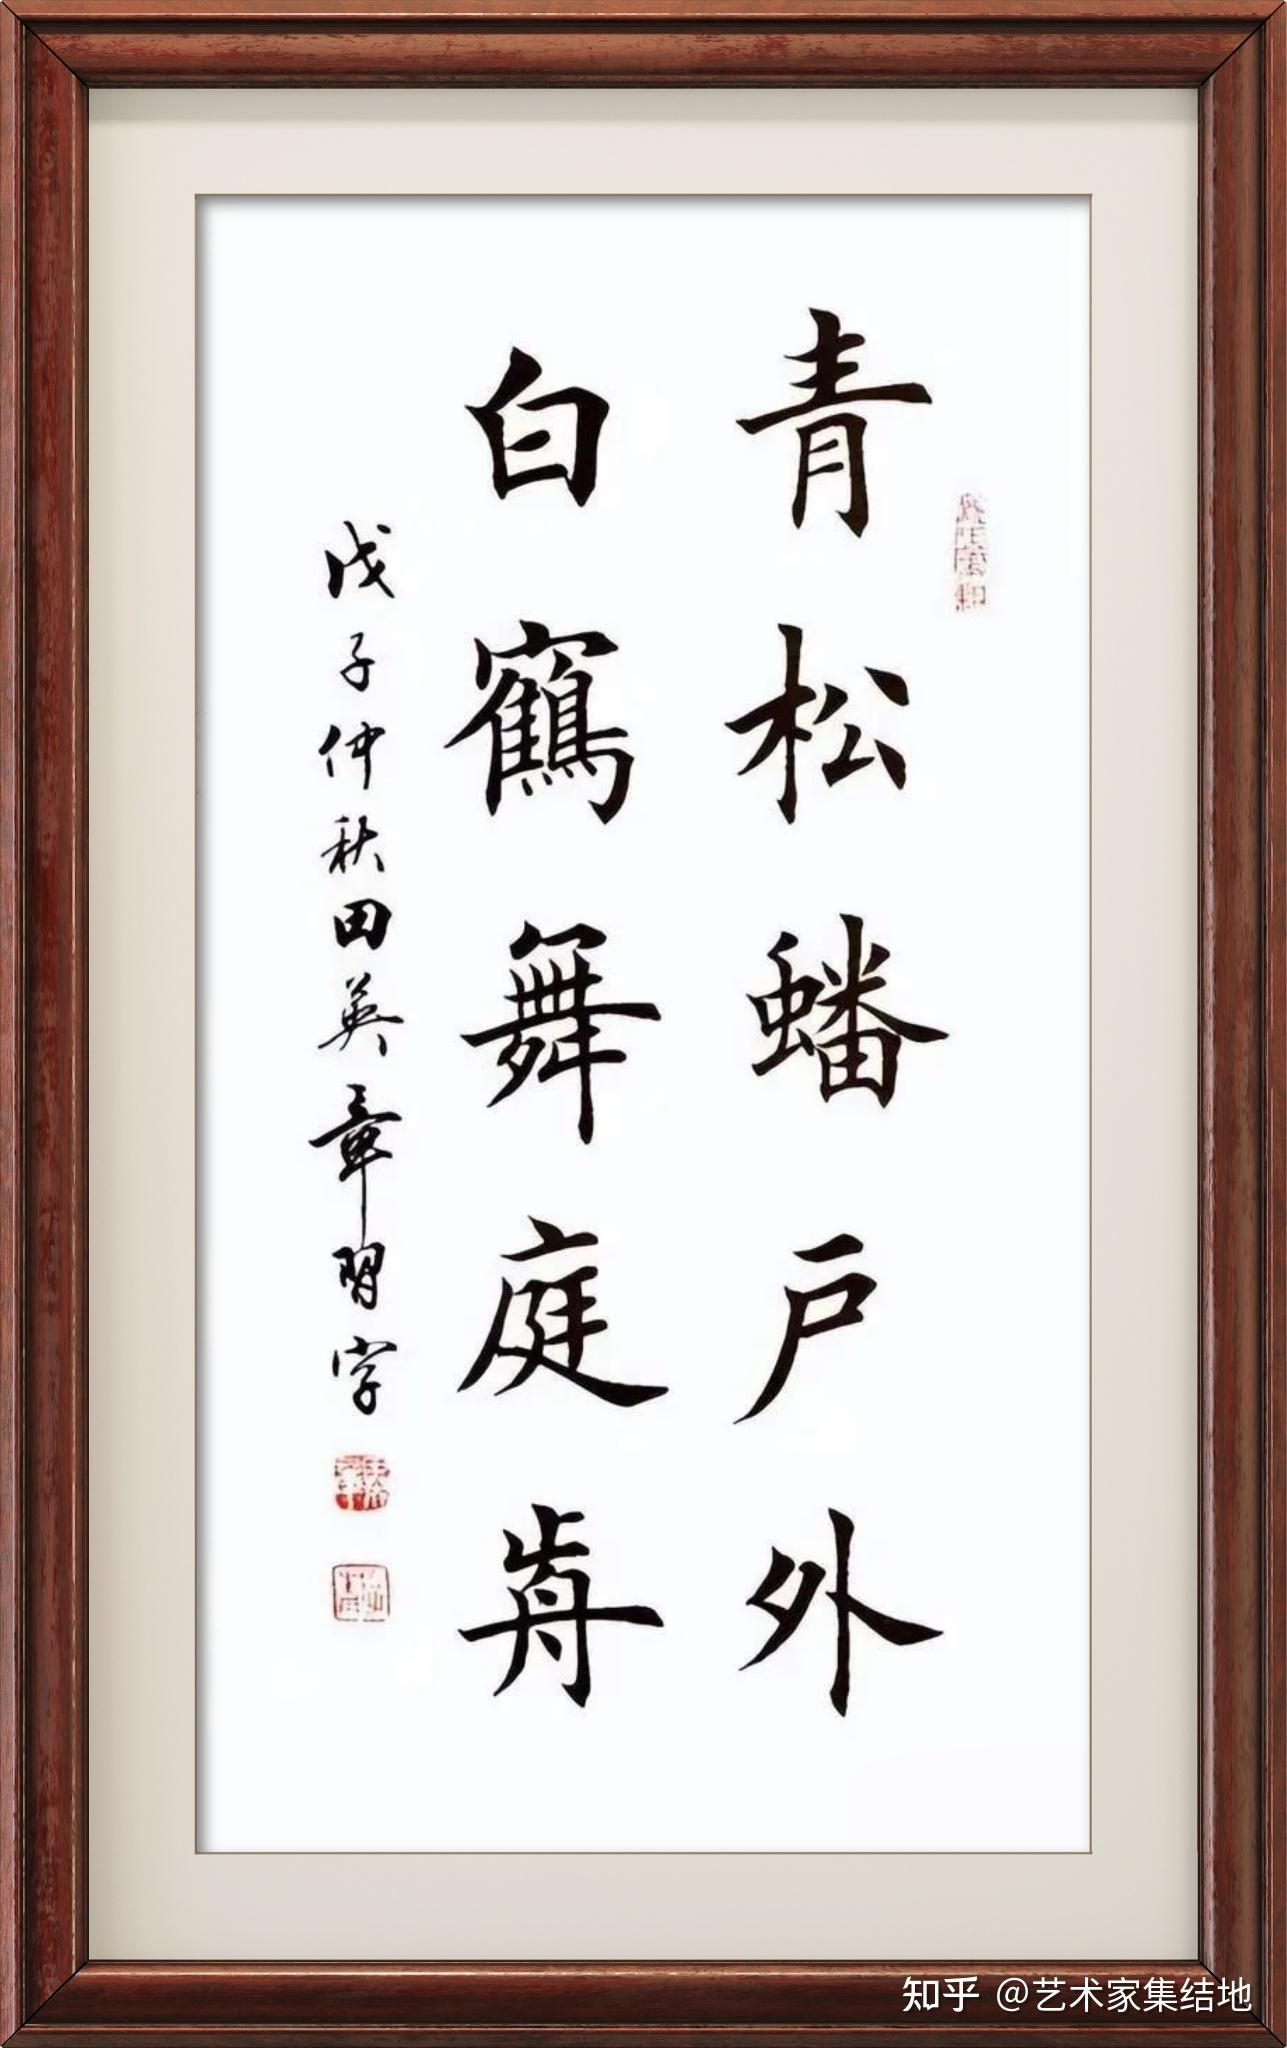 青松蟠戶外
白鶴舞庭前
戊子仲秋田英章習字
知乎 @艺术家集结地